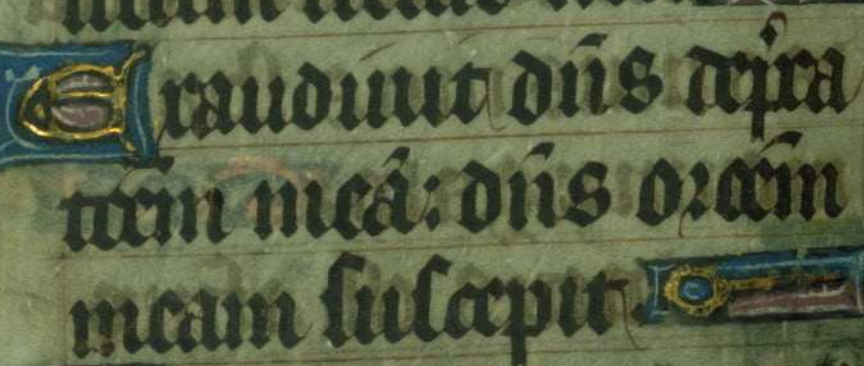 Exaudiuit dñs dep̃ca
tõem meã: dñs orõem
meam suscepit.